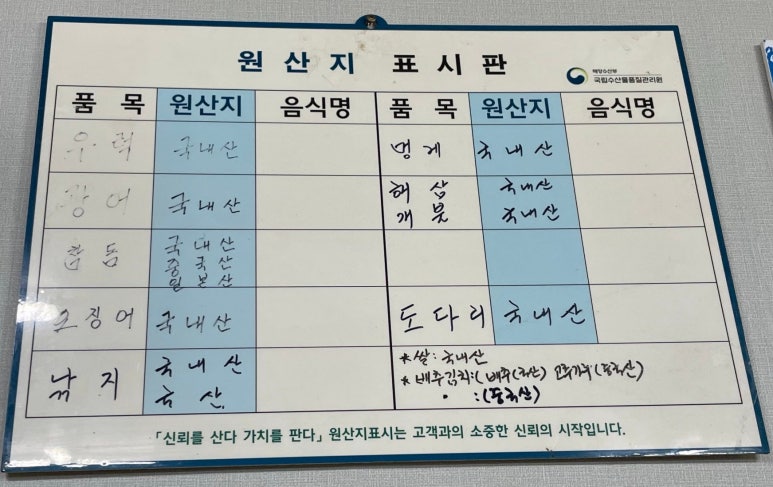 원산지 표시판
해양수산부
국립수산물품질관리원
품 목 원산지 음식명 품 목 원산지 음식명
우럭 국내산
광어 국내산
참돔 국내산
중국산
일본산
오징어 국내산
낙지 국내산
국산
멍게 국내산
해삼 국내산
개불 국내산
도다리 국내산
* 쌀: 국내산
* 배추김치:( 배추(국산) 고추가루(중국산)
:(중국산)
「신뢰를 산다 가치를 판다」 원산지표시는 고객과의 소중한 신뢰의 시작입니다.